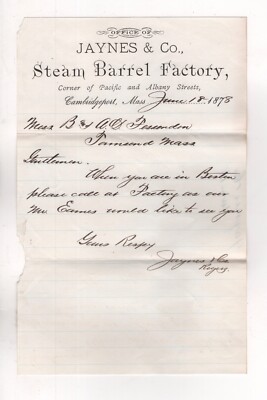 OFFICE OF
JAYNES & Co.,
Steam Barrel Factory,
Corner of Pacific and Albany Streets,
Cambridgeport, Mass June 18 1878
Mess B & A D Fessenden
Townsend Mass
Gentlemen
When you are in Boston
please call at Factory as our
Mr Eames would like to see you
Yours Respy
Jaynes & Co